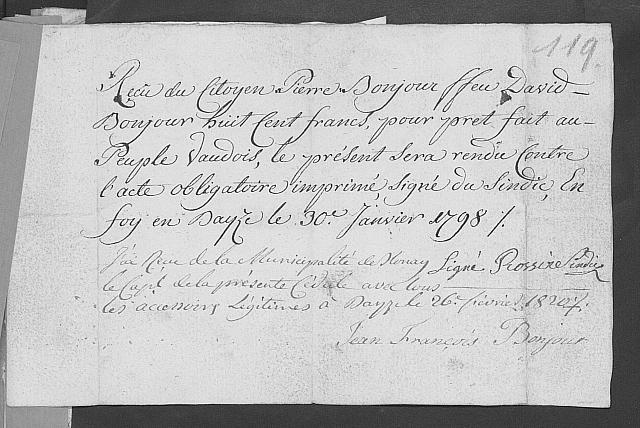 119.
Reçu du Citoyen Pierre Bonjour ffeu David
Bonjour huit Cent francs, pour pret fait au
Peuple Vaudois, le présent sera rendu Contre
l'acte obligatoire imprimé signé du Sindic, En
foy en le 30e. Janvier 1798 /.
Signé Sindic
J'ai Reçu de la Municipalité de
le Capl. de la présente Cédule avec tous
les accesoirs Légitimes à le 26e février
Jean François Bonjour